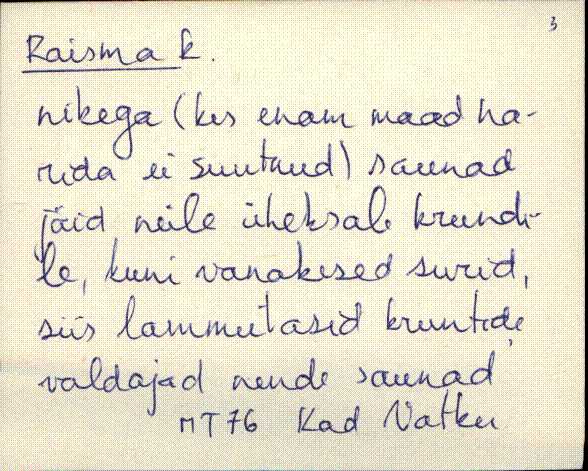 3
Raisma k.
nikega (kes enam maad ha-
rida ei suutnud) saunad
jäid neile üheksale krundi-
le, kuni vanakesed surid,
siis lammutasid kruntide
valdajad nende saunad
MT76 Kad Natku